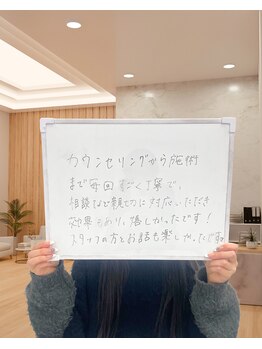 カウンセリングから施術
まで毎回すごく丁寧で、
相談など親切に対応いただき
効果もあり、嬉しかったです！
スタッフの方とお話も楽しかったです。